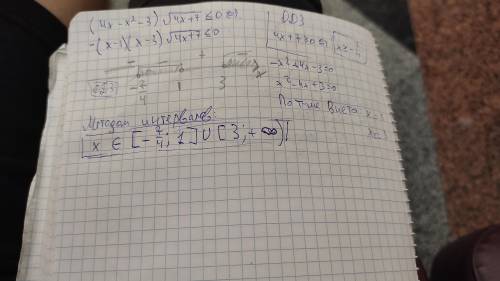 (4x-x²-3)√4x+7 ≤0 ⇔
-(x-1)(x-3)√4x+7 ≤0
ОДЗ
4x+7≥0 ⇔ x≥-7/4
-x²+4x-3=0
x²-4x+3=0
По т-ме Виета x=1
x=3
- + -
ОДЗ -7/4 1 3 x
Методом интервалов:
x ∈ [-7/4; 1] ∪ [3; +∞)